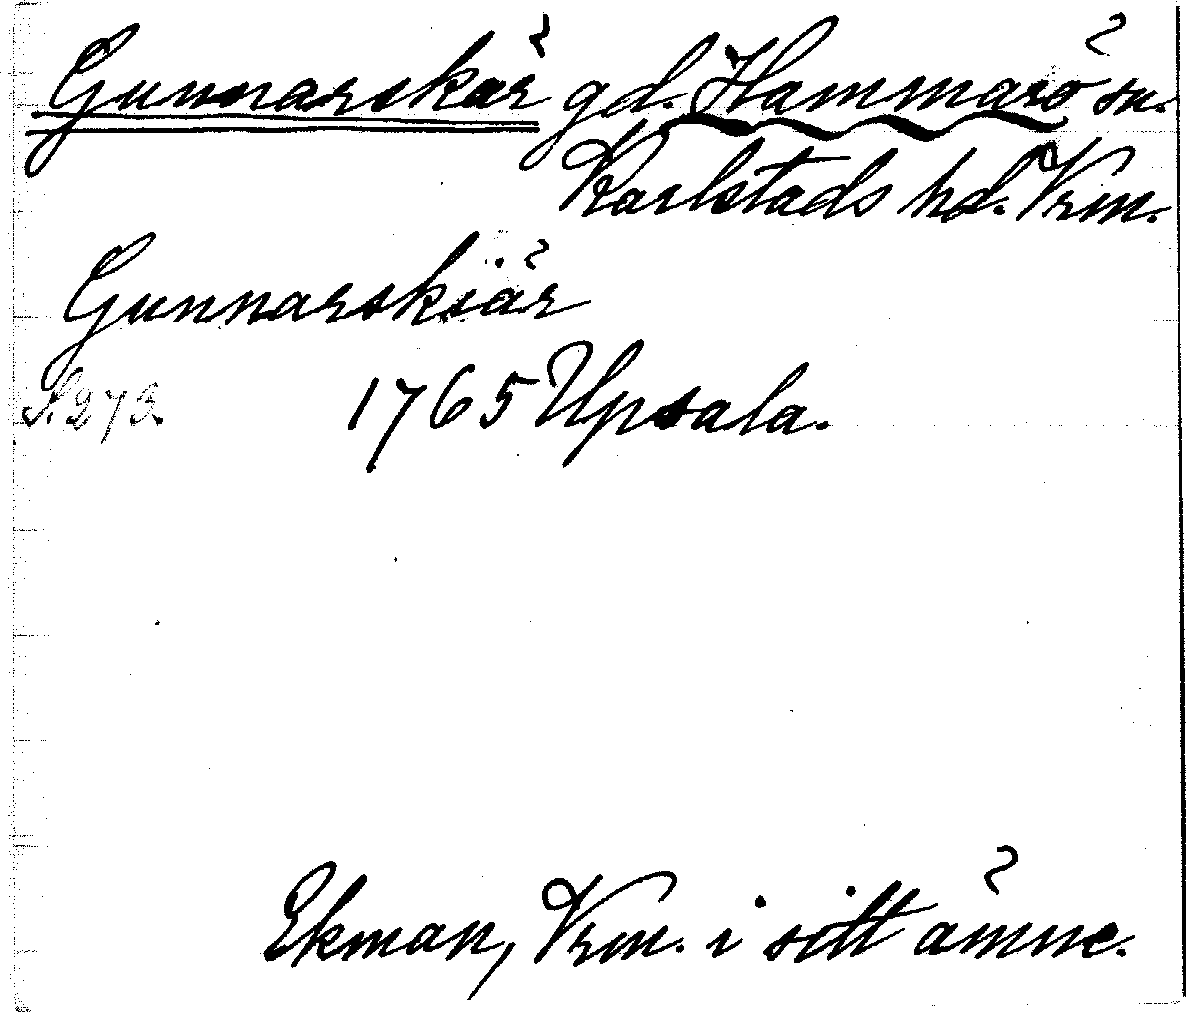 Gunnarskär gd. Hammarö sn.
Karlstads hd. Vrm.
Gunnarskiär
S. 273. 1765 Upsala.
Ekman, Vrm. i sitt ämne.